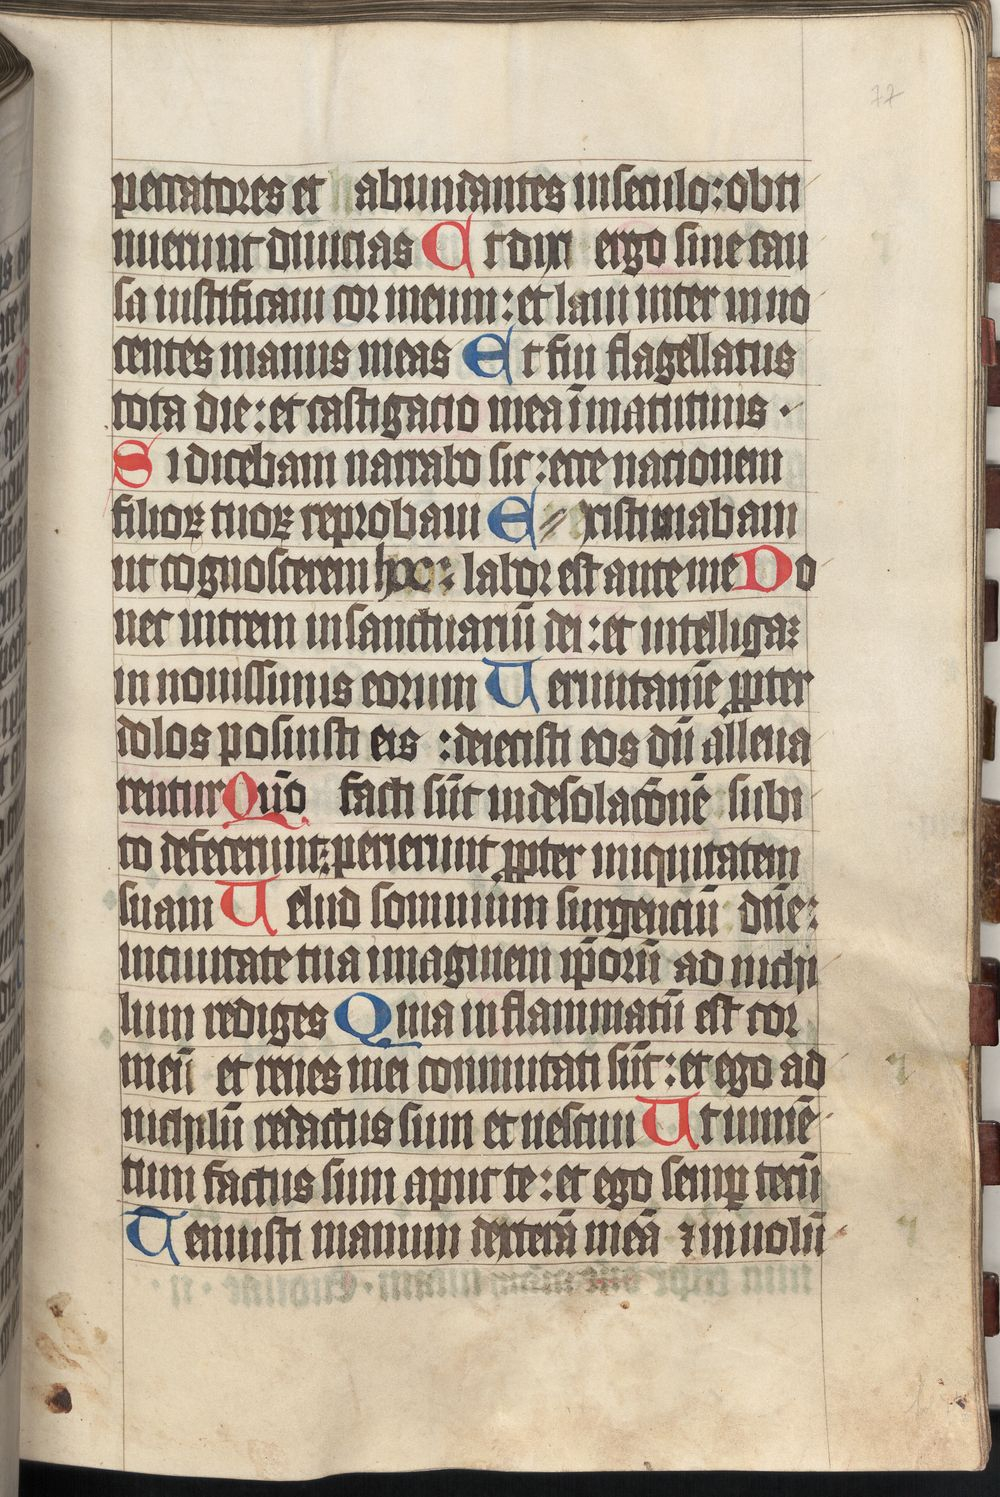 77
peccatores et abundantes in seculo: obti
nuerunt diuicias Et dixi ergo sine cau
sa iustificaui cor meum: et laui inter inno
centes manus meas Et fui flagellatus
tota die: et castigatio mea ī matutinis .
Si dicebam narrabo sic: ecce nationem
filioꝝ tuoꝝ reprobaui Existimabam
ut cognoscerem hoc: labor est ante me Do
nec intrem in sanctuariū dei: et intelligaꝫ
in nouissimis eorum Verumtamē ꝓpter
dolos posuisti eis : deiecisti eos dū alleua
rentur Quō facti sūt in desolacōnē subi
to defecerunt: perierunt ꝓpter iniquitatem
suam Velud somnium surgenciū dn̄e:
in ciuitate tua imaginem ip̄orū ad nichi
lum rediges Quia inflammatū est cor
meū et renes mei commutati sūt: et ego ad
nichilū redactus sum et nesciui Ut iumē
tum factus sum aput te: et ego semꝑ tecū
Tenuisti manum dexterā meā ⁊ in uolū